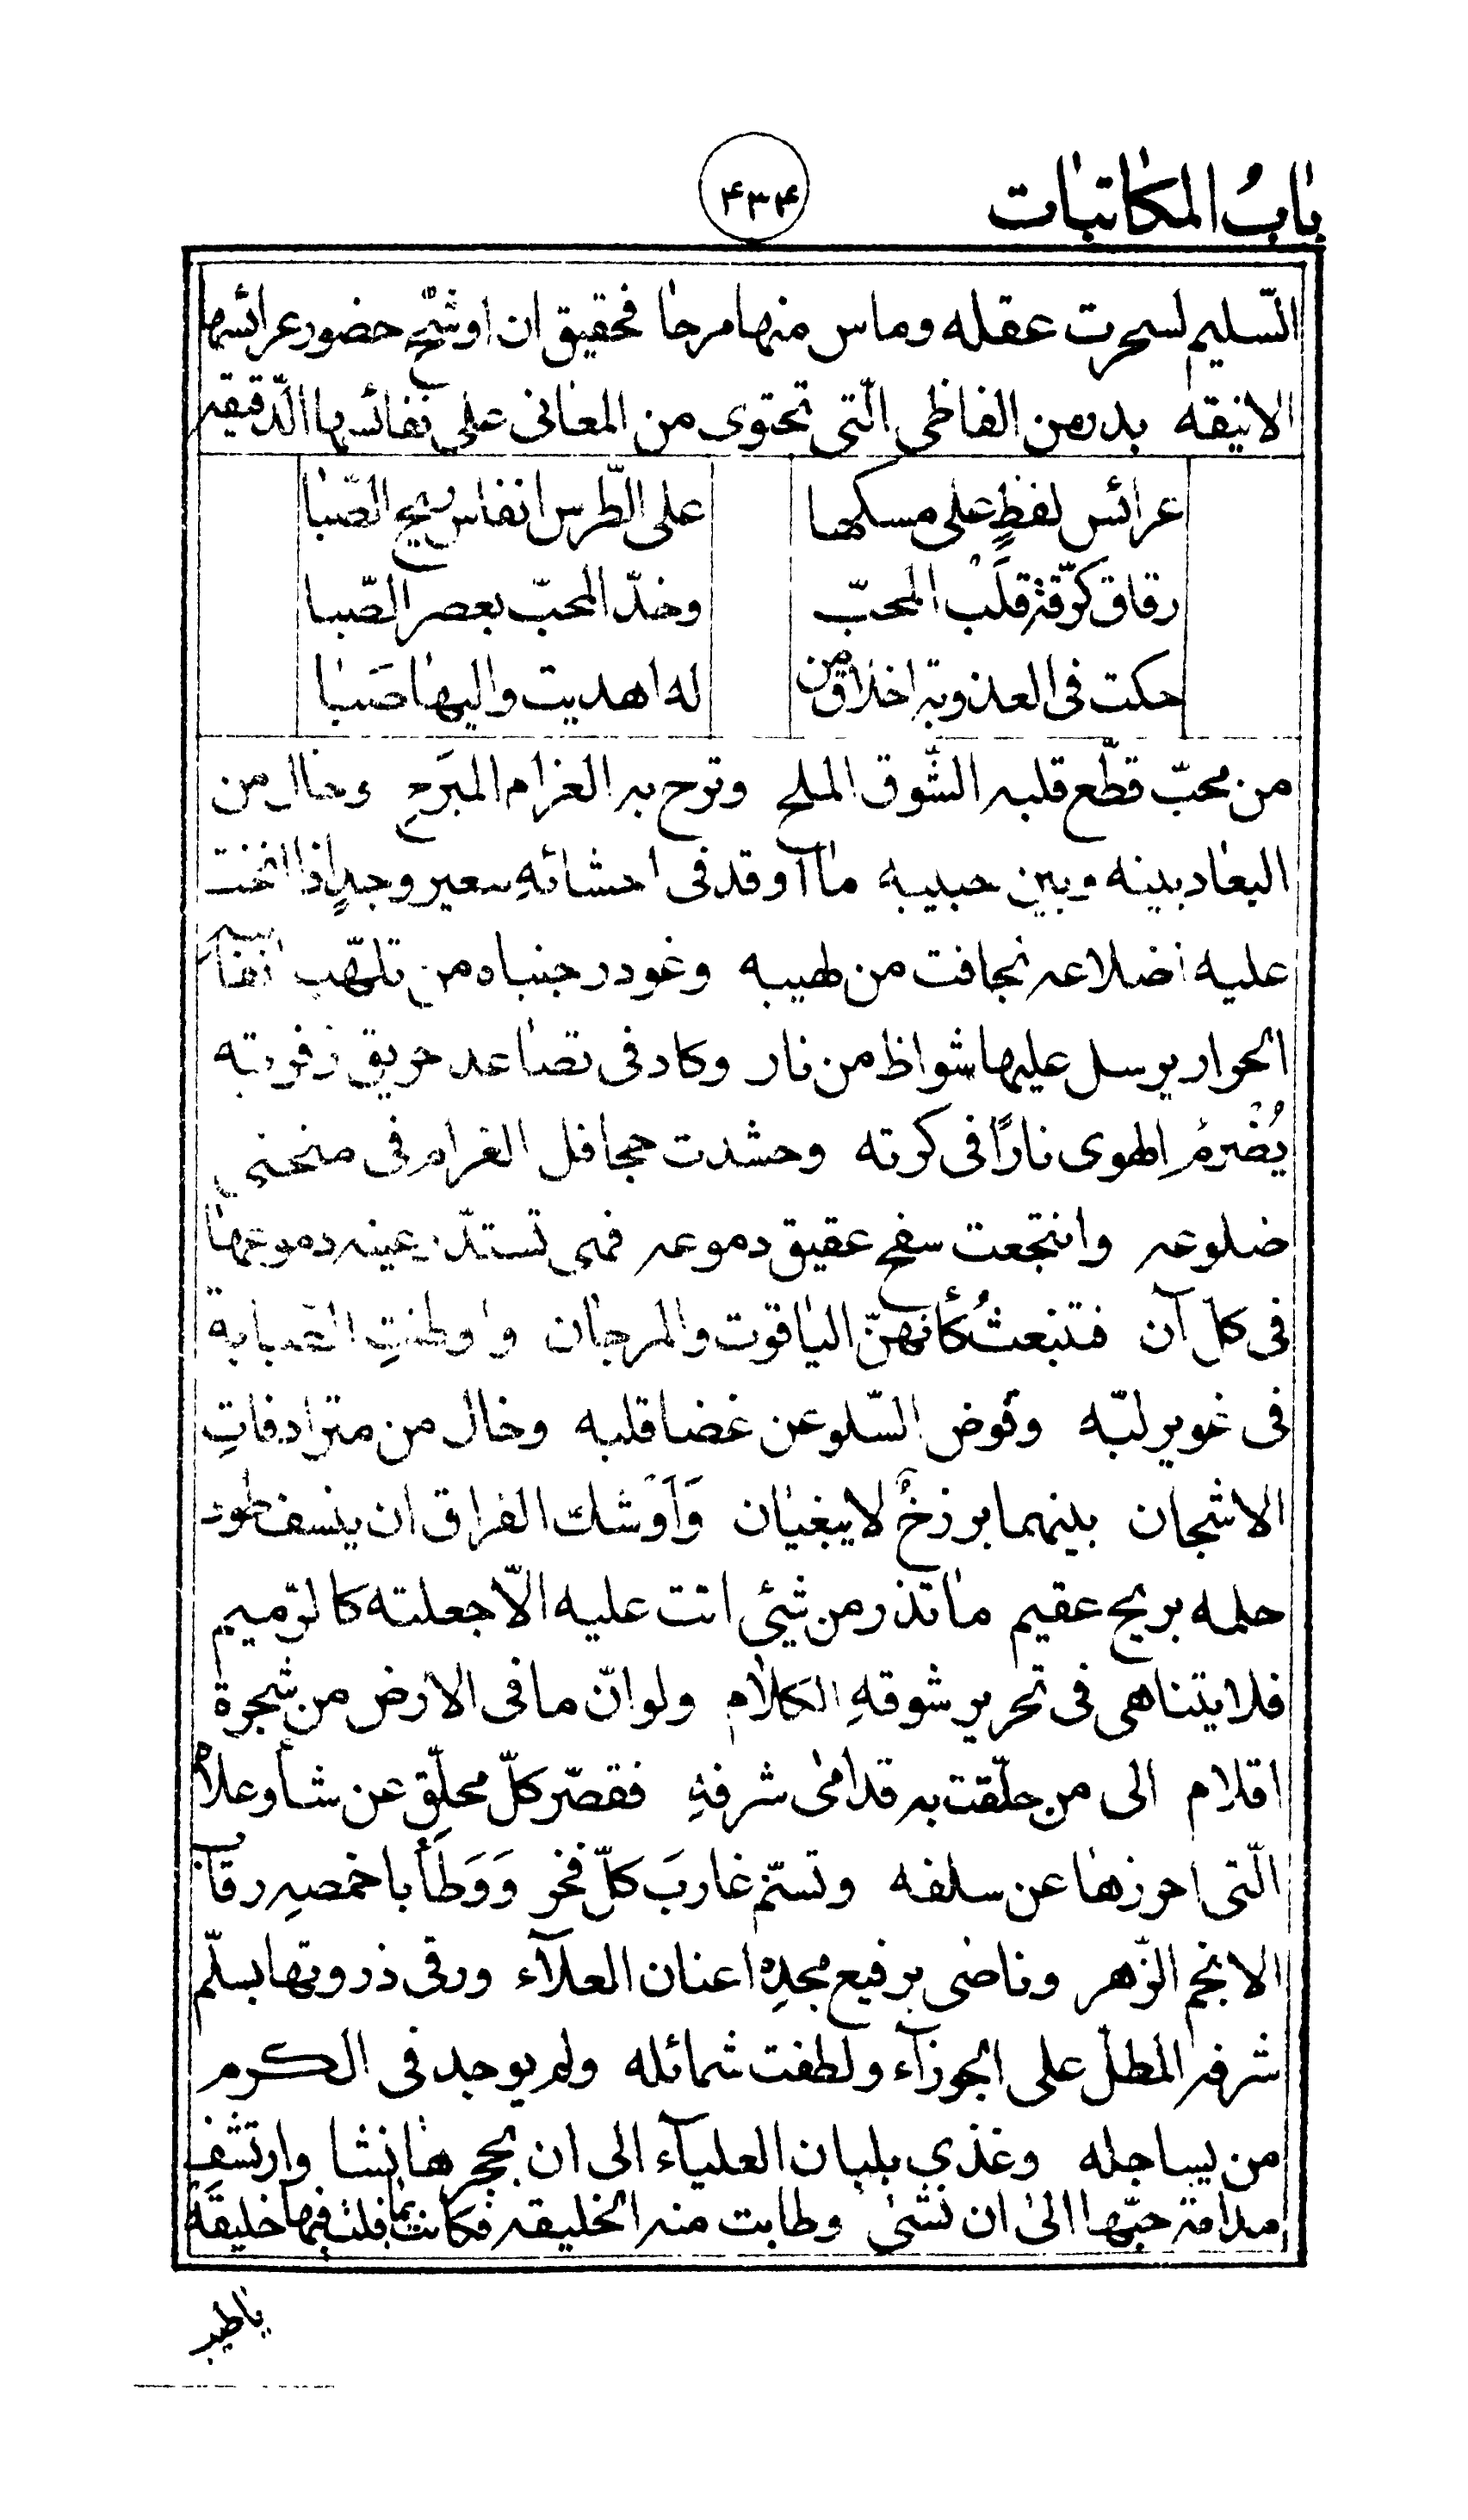 بابُ المكاتبات
۴۳۴
السّليم لسحرت عقله وماس منها مرحا فحقيق ان اوشّح حضور عرائسها
الانيقه بدر من الفاظى الّتى تحتوى من المعانى على نفائسها الدّقيقه
عرائس لفظٍ على مسكها
على الطّرس انفاس ريح الصّبا
رقاق كرّقة قلب المحبّ
وخدّ المحبّ بعصر الصّبا
حكت فى العذوبة اخلاق من
له اهديت واليها صَبا
من محبّ قطّع قلبه الشّوق الملح وترح به الغرام المبَرح وحال من
البعاد بينه وبين حبيبه ما اوقد فى احشائهِ سعير وجدٍ اذا انحنت
عليه اضلاعه تجافت من لهيبه وغودر جنباه من تلهّب
الحوار يرسل عليها شواظ من نار وكاد فى تصاعد حريق زفرته
يُضْرِمُ الهوى نارًا فى كرته وحشدت جحافل الغرام فى منحنى
ضلوعه وانتجعت سفح عقيق دموعه فهى تستدّر عينه دموعها
فى كل آن فتنبعثُ كأنهنّ الياقوت والمرجان واوطنتِ الصّبابة
فى غوير لبّه وقوض السّلو عن غضا قلبه وحال من مترادفاتِ
الاشجان بينهما برزخٌ لا يبغيان وَاَوْشك الفراق ان ينسف طود
حلمه بريح عقيم ما تذر من شئى اتت عليه الّا جعلته كالرّميم
فلا يتناهى فى تحرير شوقهِ الكلام ولو انّ ما فى الارض من شجرة
اقلام الى من حلّقت به قدامى شرفهِ فقصّر كلّ محلِّق عن شأو علاهُ
الّتى احرزها عن سلفه وتسنّم غاربَ كلّ فخر وَوَطَأ باخمصهِ رقابَ
الانجم الزّهر وناضى برفيع مجدِه اعنان العلآء ورقى ذروتها بسلّم
شرفه المطلّ على الجوزآء ولطفت شمائله ولم يوجد فى الكرم
من يساجله وغذي بلبان العليآء الى ان بحجرها نشا وارتشف
مدامة حبّها الى ان نشى وطابت منه الخليقه فكانت بما قلته فيها خليقَة
ياطير